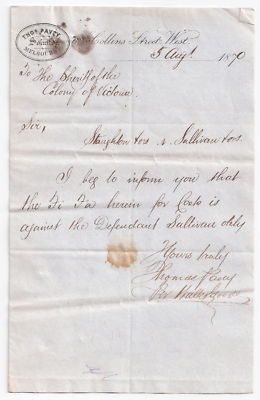 THOS PAVEY
MELBOURNE
Collins Street West
5 Augt 1870
To The Sheriff of the
Colony of Victoria
Sir,
Staughton ors v. Sullivan ors
I beg to inform you that
the Fi Fa herein for Costs is
against the Defendant Sullivan only
Yours truly
Thomas Pavey
Per